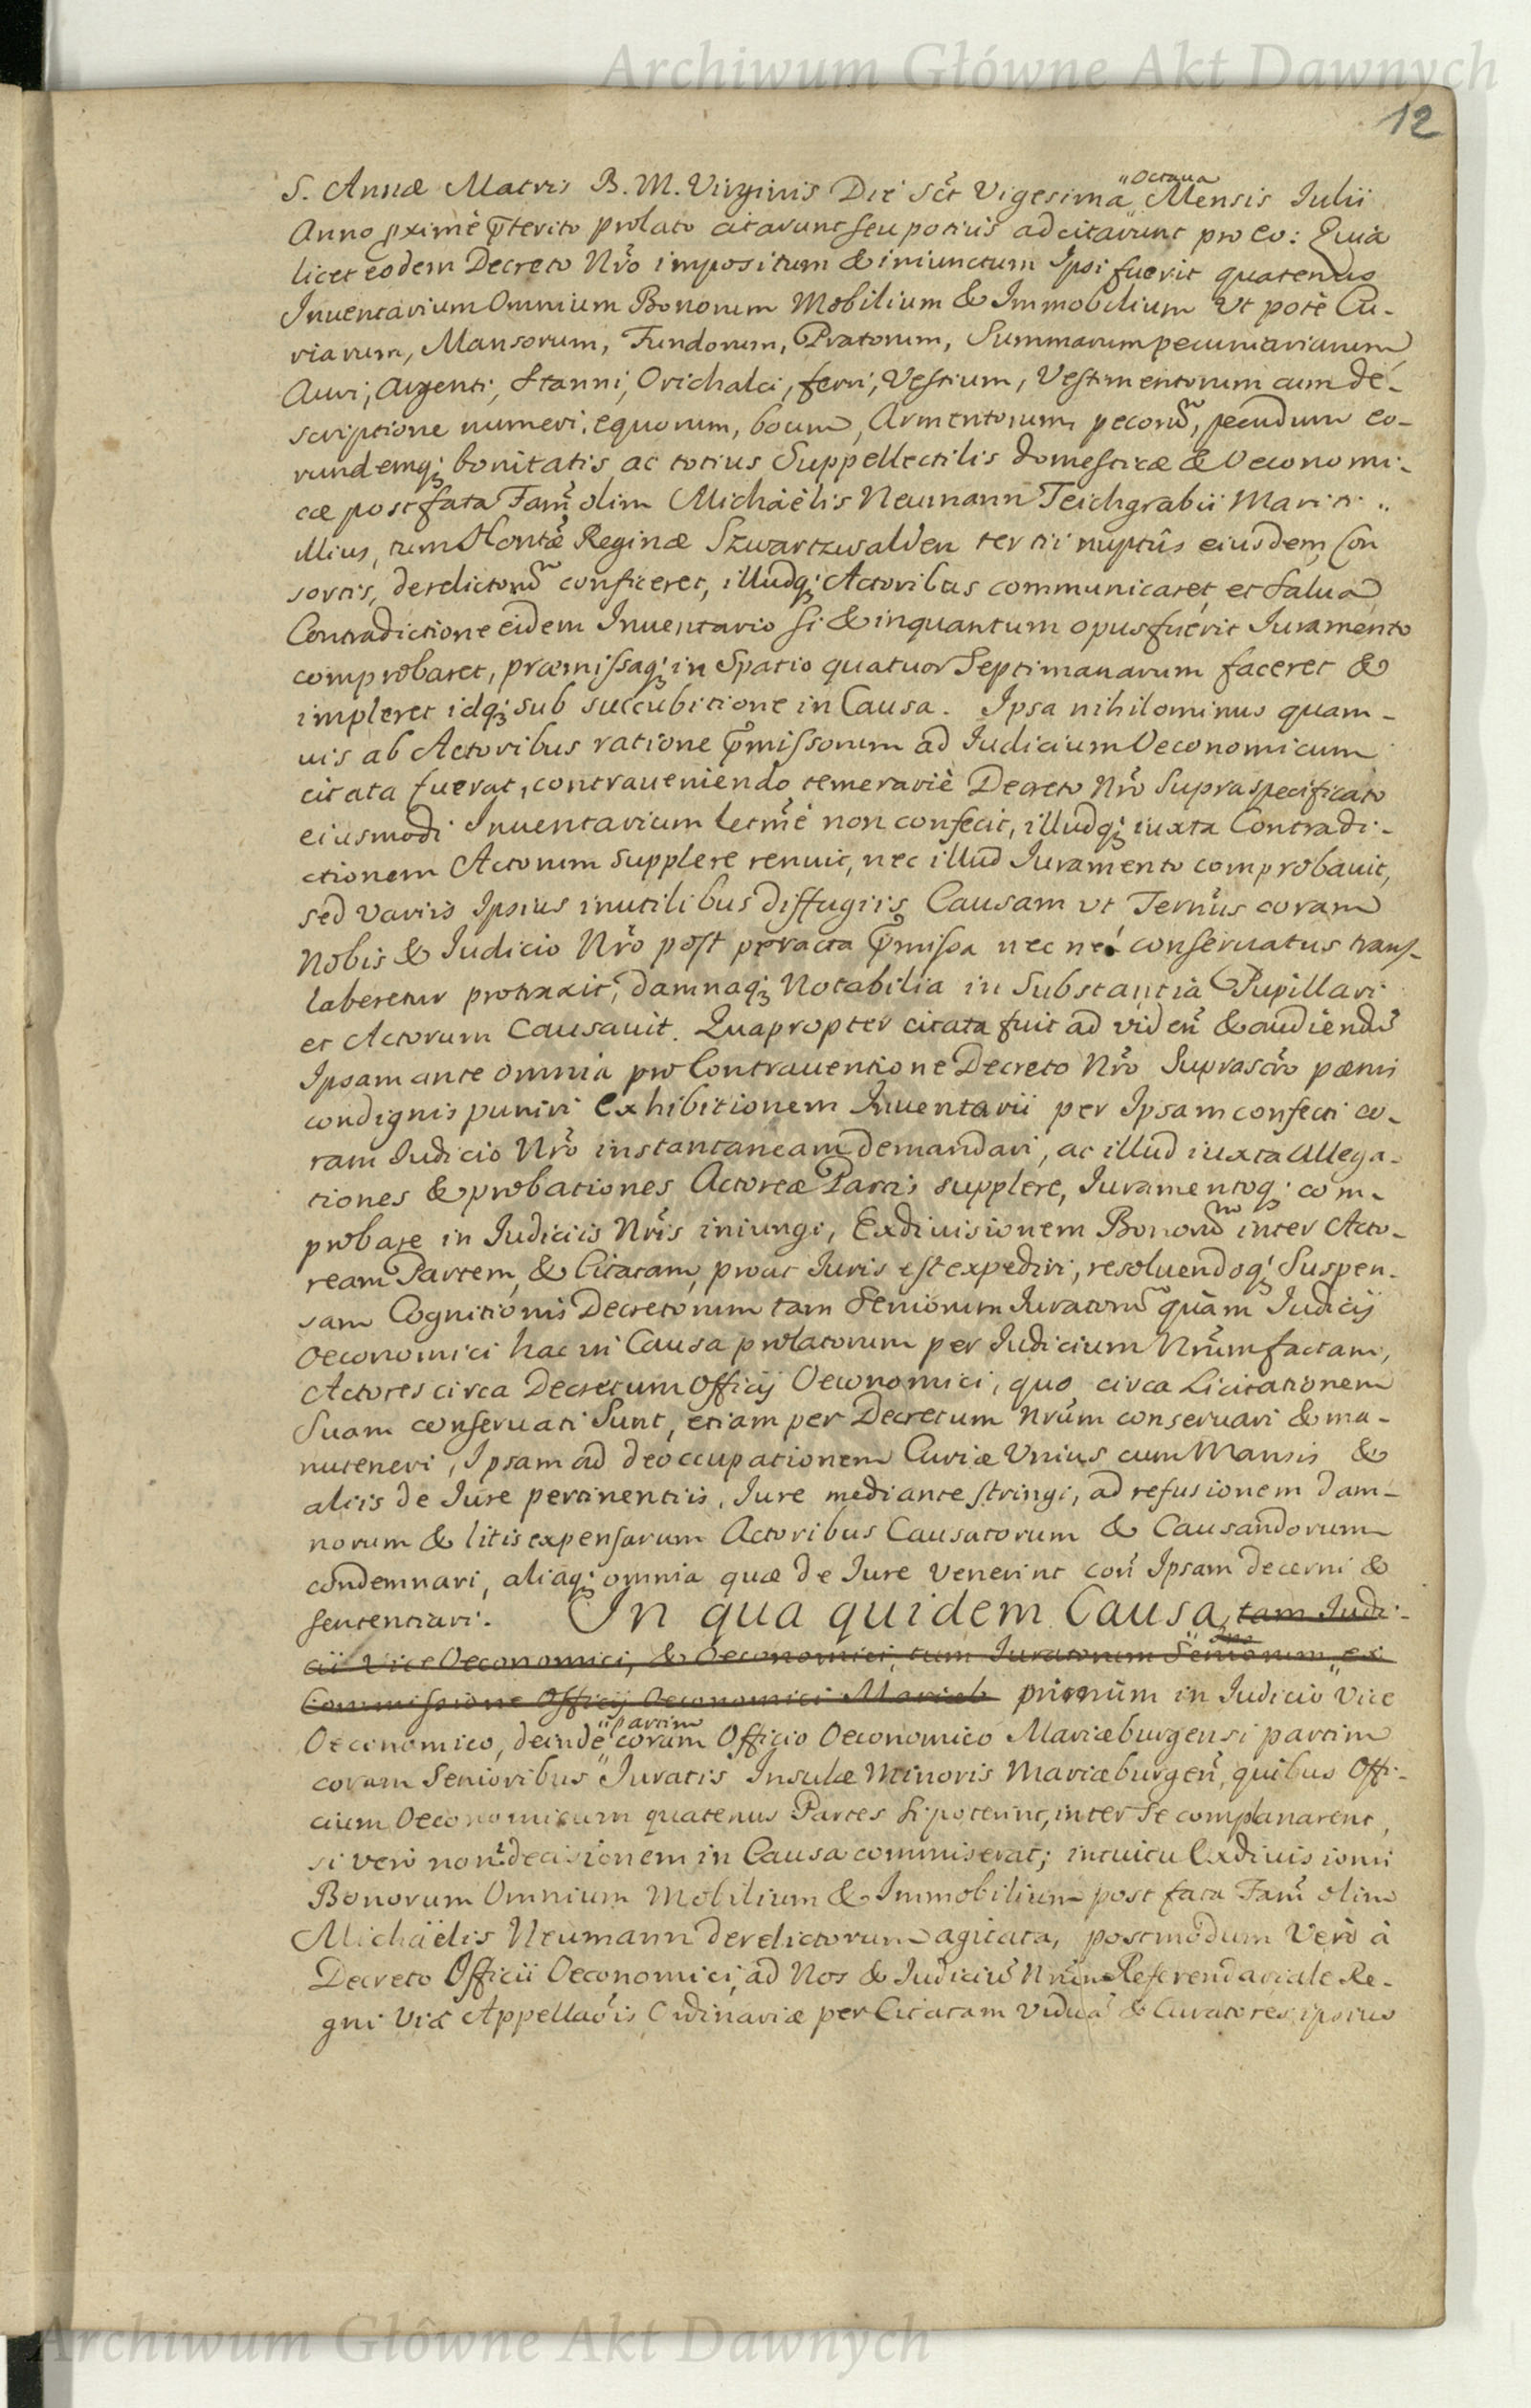 Archiwum Główne Akt Dawnych
12
S. Annæ Matris B. M. Virginis Die sc̃t Vigesima "Octaua Mensis Iulii
Anno pximè p̃terito prolato citarunt seu potius adcitarunt pro eo: Quia
licet eodem Decreto Nr̃o impositum & iniunctum Ipsi fuerit quatenus
Inuentarium Omnium Bonorum Mobilium & Immobilium Vt potè Cu-
riarum, Mansorum, Fundorum, Pratorum, Summarum pecuniariarum
Auri, Argenti, Stanni, Orichalci, ferri, Vestium, Vestimentorum cum de-
scriptione numeri, equorum, boum, Armentorum, pecorũ, pecudum eo-
rundemq; bonitatis ac totius Suppellectilis domesticæ & Oeconomi-
cæ post fata Fam̃ olim Michaëlis Neumann Teichgrabii Mariti
illius, tum Hontæ̃ Reginæ Szwartzwalden tertii nuptûs eiusdem Con
sortis, derelictorũ conficeret, illudq; Actoribus communicaret, et salua
Contradictione eidem Inuentario si & inquantum opus fuerit Iuramento
comprobaret, præmissaq; in Spatio quatuor Septimanarum faceret &
impleret idq; sub succubitione in Causa. Ipsa nihilominus quam-
uis ab Actoribus ratione p̃missorum ad Iudicium Oeconomicum
citata fuerat, contraueniendo temerariè Decreto Nr̃o Supraspecificato
eiusmodi Inuentarium letm̃è non confecit, illudq; iuxta Contradi-
ctionem Actorum supplere renuit, nec illud Iuramento comprobauit,
sed variis Ipsius inutilibus diffugiis Causam vt Tern̂us coram
Nobis & Iudicio Nr̃o post peracta p̃missa nec ne conseruatus trans-
laberetur protraxit, damnaq; Notabilia in Substantia Pupillari
et Actorum causauit. Quapropter citata fuit ad viden̂ & audiendũ
Ipsam ante omnia pro Contrauentione Decreto Nr̃o Suprascr̃o pœnis
condignis puniri exhibitionem Inuentarii per Ipsam confecti co-
ram Iudicio Nr̃o instantaneam demandari, ac illud iuxta allega-
tiones & probationes Actoreæ Partis supplere, Iuramentoq; com-
probare in Iudiciis Nr̃is iniungi, Exdiuisionem Bonorũ inter Acto-
ream Partem & Citatam prout Iuris est expediri, resoluendoq; Suspen-
sam Cognitionis Decretorum tam Seniorum Iuratorũ quàm Iudicij
Oeconomici hac in Causa prolatorum per Iudicium Nr̃um factam,
Actores circa Decretum Officij Oeconomici, quo circa Licitationem
Suam conseruati sunt, etiam per Decretum Nr̃um conseruari & ma-
nuteneri, Ipsam ad deoccupationem Curiæ Vnius cum Mansis &
aliis de Iure pertinentiis, Iure mediante stringi, ad refusionem dam-
norum & litis expensarum Actoribus Causatorum & Causandorum
condemnari, aliaq; omnia quæ de Iure venerint con̂ Ipsam decerni &
sententiari. In qua quidem Causa, tam Iudi-
cii Vice Oeconomici, & Oeconomici, tum Iuratorum Seniorum ex
Commissione Officij Oeconomici Marieb primùm in Iudicio Vice
Oeconomico, deinde "partim coram Officio Oeconomico Mariæburgensi partim
coram Senioribus Iuratis Insulæ Minoris Mariæburgen̂, quibus Offi-
cium Oeconomicum quatenus Partes si poterint, inter se complanarent,
si verò non decisionem in Causa commiserat; intuitu Exdiuisionis
Bonorum Omnium Mobilium & Immobilium post fata Fam̃ olim
Michaëlis Neumann derelictorum agitata, postmodum Verò à
Decreto Officii Oeconomici, ad Nos & Iudiciũ Nr̃um Referendariale Re-
gni Viæ Appellaõis Ordinariæ per Citatam viduã & Curatores ipsius
Archiwum Główne Akt Dawnych